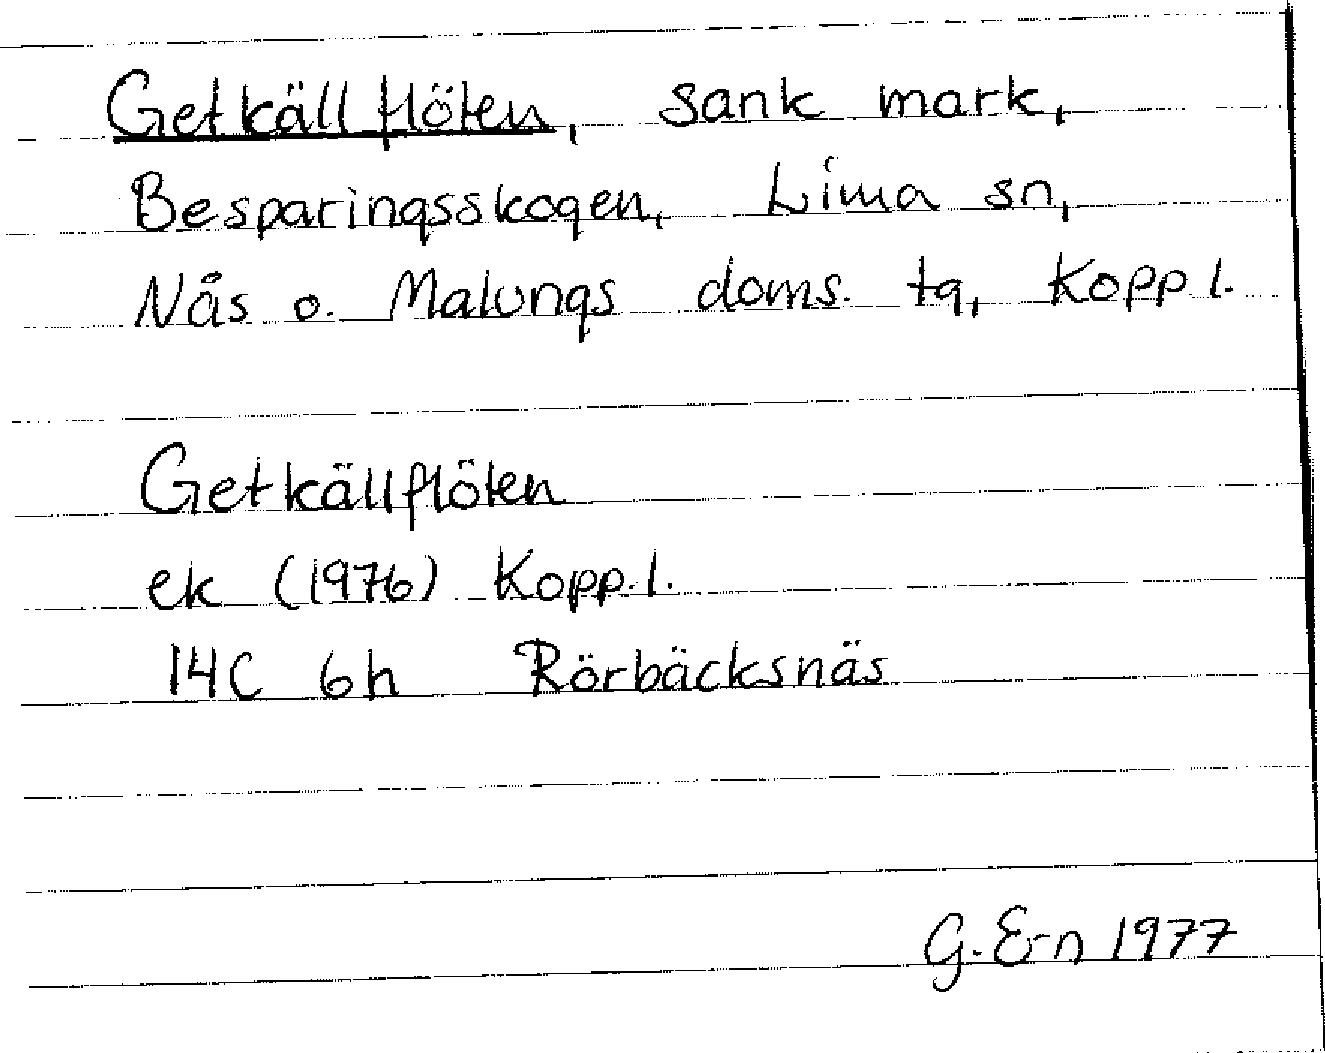 Getkällflöten, sank mark,
Besparingsskogen, Lima sn,
Nås o. Malungs doms. tg, Kopp l.
Getkällflöten
ek (1976) Kopp. l.
14C 6h Rörbäcksnäs
G. E-n 1977